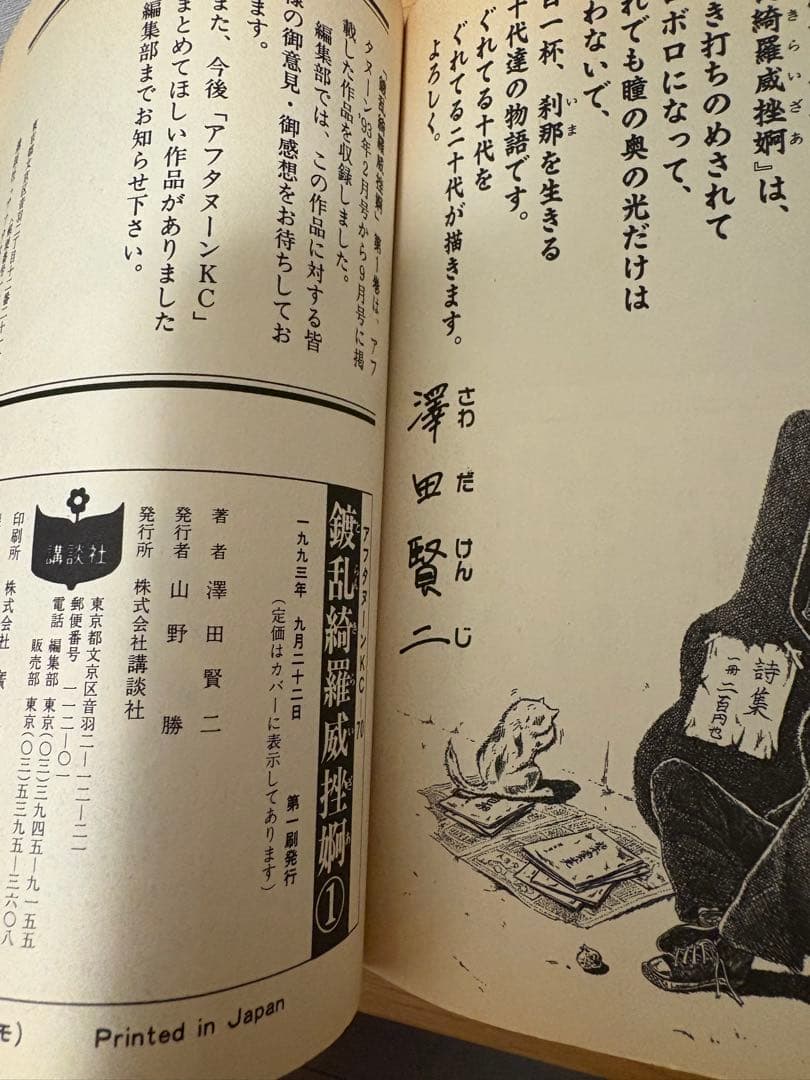 綺羅威挫婀』は、
きらいざあ
き打ちのめされて
ボロになって、
れでも瞳の奥の光だけは
わないで、
日一杯、刹那を生きる
いま
十代達の物語です。
ぐれてる十代を
ぐれてる二十代が描きます。
よろしく。
澤田賢二
さわだけんじ
詩集
一冊二百円也
『鍍乱綺羅威挫婀』第1巻は、アフ
タヌーン'93年2月号から9月号に掲
載した作品を収録しました。
編集部では、この作品に対する皆
様の御意見・御感想をお待ちしてお
ます。
また、今後「アフタヌーンKC」
まとめてほしい作品がありました
編集部までお知らせ下さい。
東京都文京区音羽二丁目十二番二十一
アフタヌーンKC 70
鍍乱綺羅威挫婀①
とらんきらいざあ
一九九三年 九月二十二日 第一刷発行
(定価はカバーに表示してあります)
著者 澤田賢二
発行者 山野 勝
発行所 株式会社講談社
東京都文京区音羽二―一二―二一
郵便番号 一一二―〇一
電話 編集部 東京(〇三)三九四五―九一五五
販売部 東京(〇三)五三九五―三六〇八
講談社
印刷所 株式会社 廣
モ)
Printed in Japan